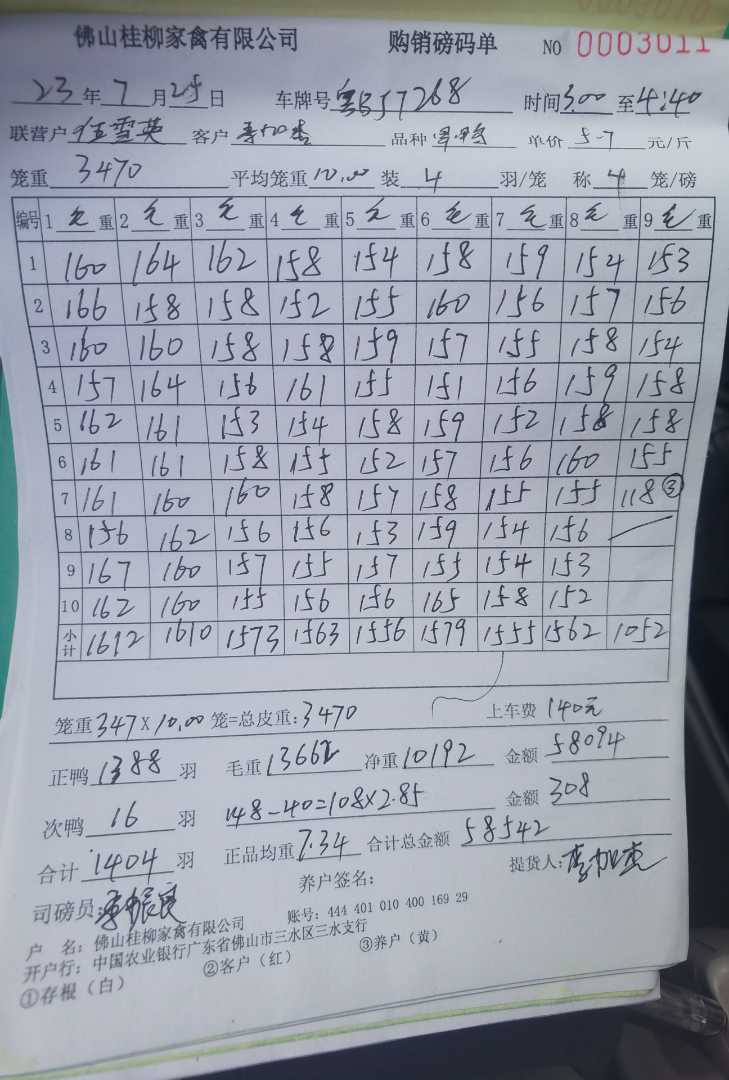 佛山桂柳家禽有限公司 购销磅码单 NO 0003011
23年7月25日 车牌号 粤B57268 时间3.00至4:40
联营户 伍雪英 客户 品种 单价 5-7 元/斤
笼重 3470 平均笼重10.00装 4 羽/笼 称 4 笼/磅
编号 1 毛 重 2 毛 重 3 毛 重 4 毛 重 5 毛 重 6 毛 重 7 毛 重 8 毛 重 9 毛 重
1 160 164 162 158 154 158 159 154 153
2 166 158 158 152 155 160 156 157 156
3 160 160 158 158 159 157 155 158 154
4 157 164 156 161 155 151 156 159 158
5 162 161 153 154 158 159 152 158 158
6 161 161 158 155 152 157 156 160 155
7 161 160 160 158 157 158 155 155 118③
8 156 162 156 156 153 159 154 156
9 167 160 157 155 157 155 154 153
10 162 160 155 156 156 165 158 152
小计 1612 1610 1573 1563 1556 1579 1555 1562 1052
笼重347X10.00笼=总皮重:3470 上车费 140元
正鸭1388羽 毛重13662 净重10192 金额 58094
次鸭 16 羽 148-40=108×2.85 金额 308
合计 1404 羽 正品均重7.34 合计总金额 58542
司磅员: 养户签名: 提货人:
户 名:佛山桂柳家禽有限公司 账号:444 401 010 400 169 29
开户行:中国农业银行广东省佛山市三水区三水支行
①存根(白) ②客户(红) ③养户(黄)